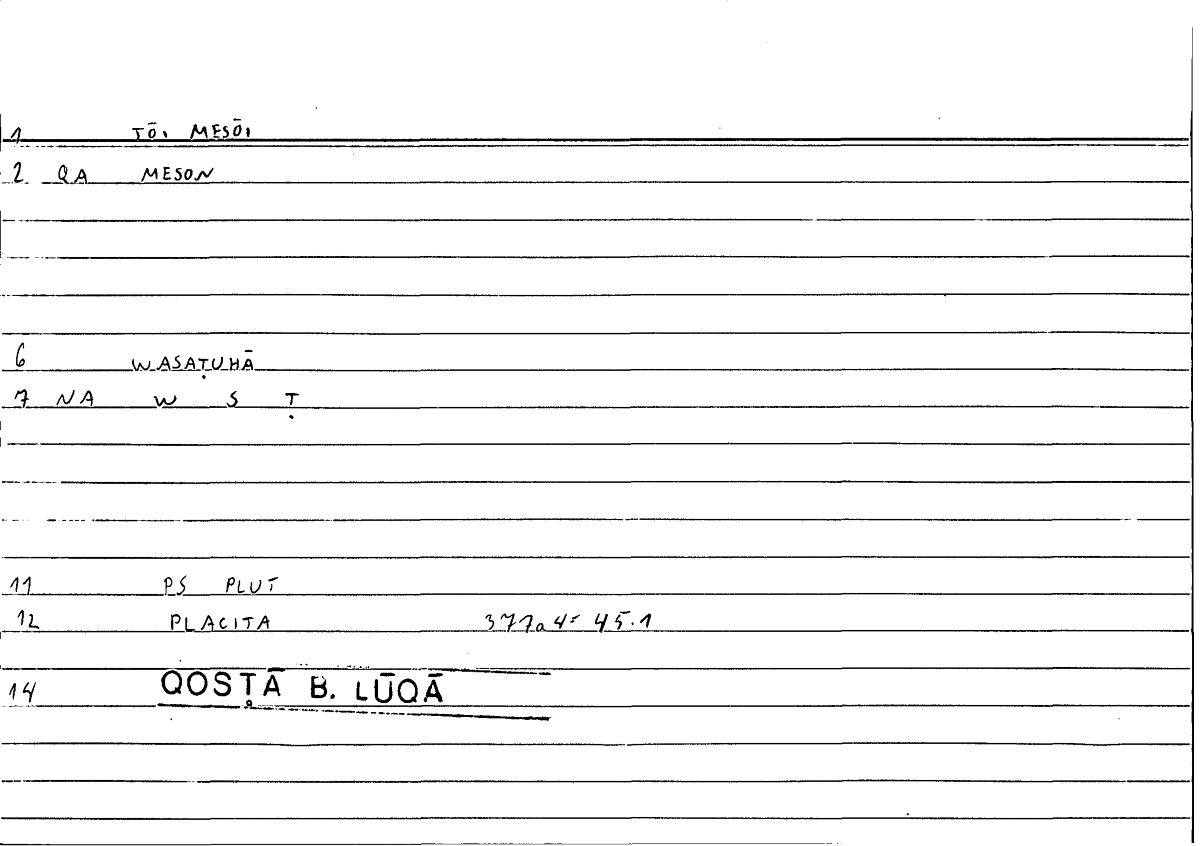 1 TŌI MESŌI
2 QA MESON
6 WASAṬUHĀ
7 NA W S Ṭ
11 PS PLUT
12 PLACITA 377a4= 45.1
14 QOSṬĀ B. LŪQĀ